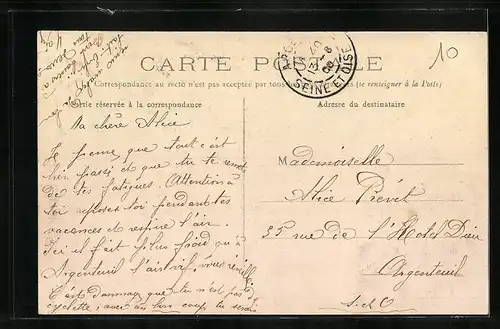 10
CARTE POSTALE
SEINE ET OISE
Correspondance au recto n'est pas acceptée par tous les (se renseigner à la Poste)
Partie réservée à la correspondance
Adresse du destinataire
Ma chère Alice
Je pense que tout s'est
bien passé et que tu te remets
de tes fatigues. Attention à
toi reposes toi pendant tes
vacances et respire l'air.
Ici il fait plus froid qu'à
Argenteuil l'air vif vous
C'est dommage que tu n'est pas
cyclette, avec un bon coup tu
Mademoiselle
Alice Prévet
55 rue de l'Hotel Dieu
Argenteuil
S. et O